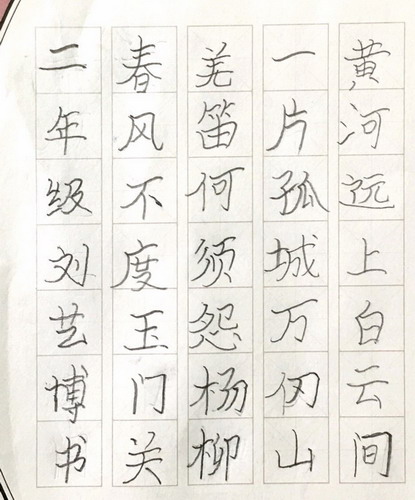 黄河远上白云间
一片孤城万仞山
羌笛何须怨杨柳
春风不度玉门关
二年级刘艺博书